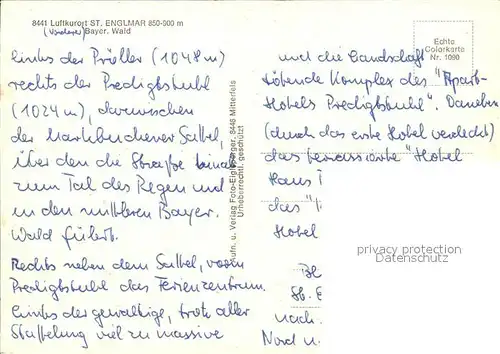 8441 Luftkurort ST. ENGLMAR 850-900 m
(Vorderer) Bayer. Wald
links der Pröller (1048 m)
rechts der Predigtstuhl
(1024 m), dazwischen
der Markbuchener Sattel,
über den die Straße
zum Tal des Regen und
in den mittleren Bayer.
Wald führt.
Rechts neben dem Sattel, vorm
Predigtstuhl das Ferienzentrum.
links der gewaltige, trotz aller
Staffelung viel zu massive
Aufn. u. Verlag Foto-Elgl 8446 Mitterfels
Urheberrechtl. geschützt
Echte
Colorkarte
Nr. 1090
und die Landschaft
störende Komplex des "Apart-
Hotels Predigtstuhl". Daneben
(durch das erste Hotel verdeckt)
das terrassierte "Hotel
Haus
das "
Hotel
privacy protection
Datenschutz
St. E
nach
Nord u.